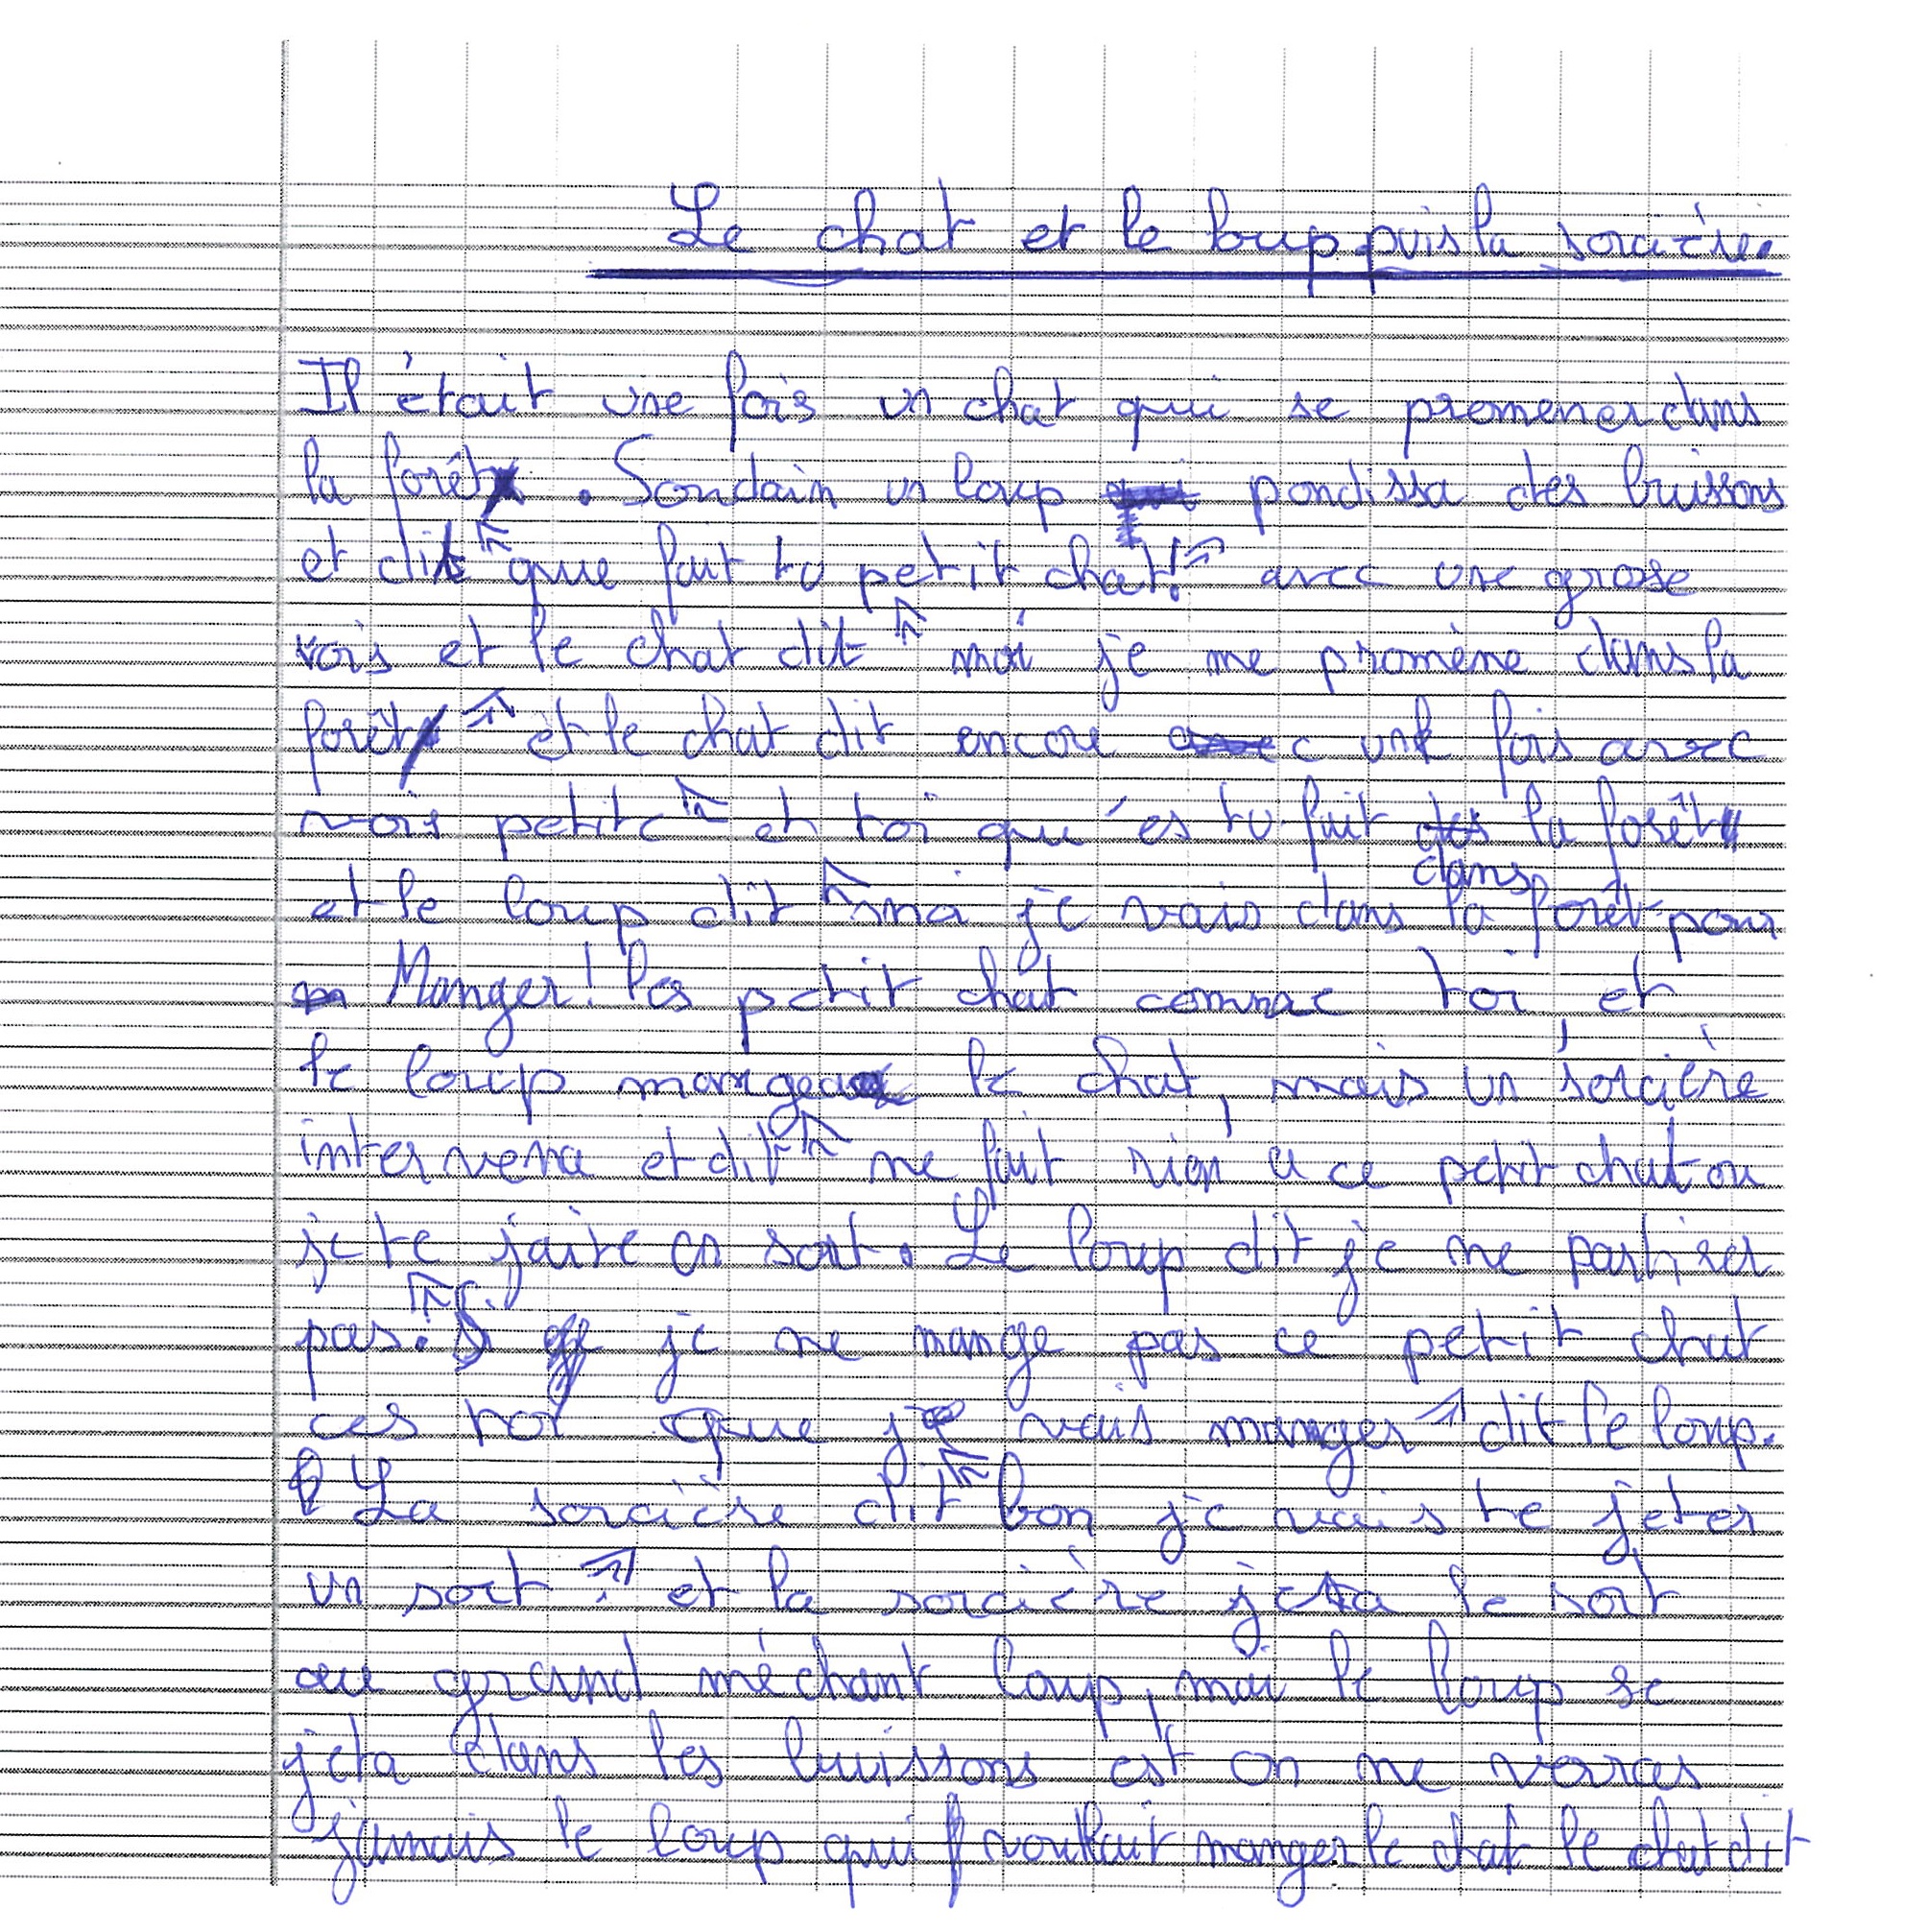 Le chat et le loup puis la sorcière.
Il était une fois un chat qui se promener dans
la forêt. Soudain un loup pondissa des buissons
et dit " que fait tu petit chat! " avec une grosse
vois et le chat dit " moi je me promène dans la
forêt " et le chat dit encore une fois avec
vois petite " et toi qu'es tu fait dans la forêt
et le loup dit " moi je vais dans la forêt pour
Manger! les petit chat comme toi et
le loup mangea le chat, mais un sorcière
intervena et dit " ne fait rien a ce petit chat ou
je te jaite en sort. Le loup dit je ne partirer
pas. " Si je ne mange pas ce petit chat
ces toi que je vais manger " dit le loup.
La sorcière dit " bon je vais te jeter
un sort " et la sorcière jeta le sort
au grand méchant loup, mai le loup se
jeta dans les buissons est on ne verras
jamais le loup qui voulait manger le chat le chat dit